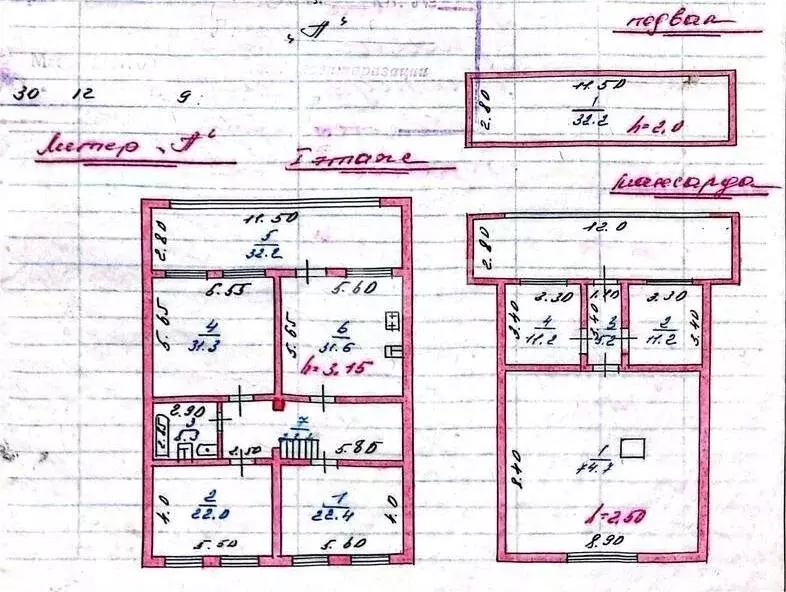 "П"
подвал
30 12 9
11.50
2.80
1
32.2
h=2,0
Литер "П"
I этаж
мансарда
11.50
2.80
5
32.2
12.0
2.80
5.55
5.60
5.65
4
31.3
5.65
6
31.6
h=3,15
3.30
3.40
4
11.2
3.40
3
5.2
3.30
2
11.2
3.40
2.90
2.15
3
7
2.50
5.80
4.0
2
22.0
5.50
1
22.4
4.0
5.60
8.40
1
74.7
h=2,50
8.90